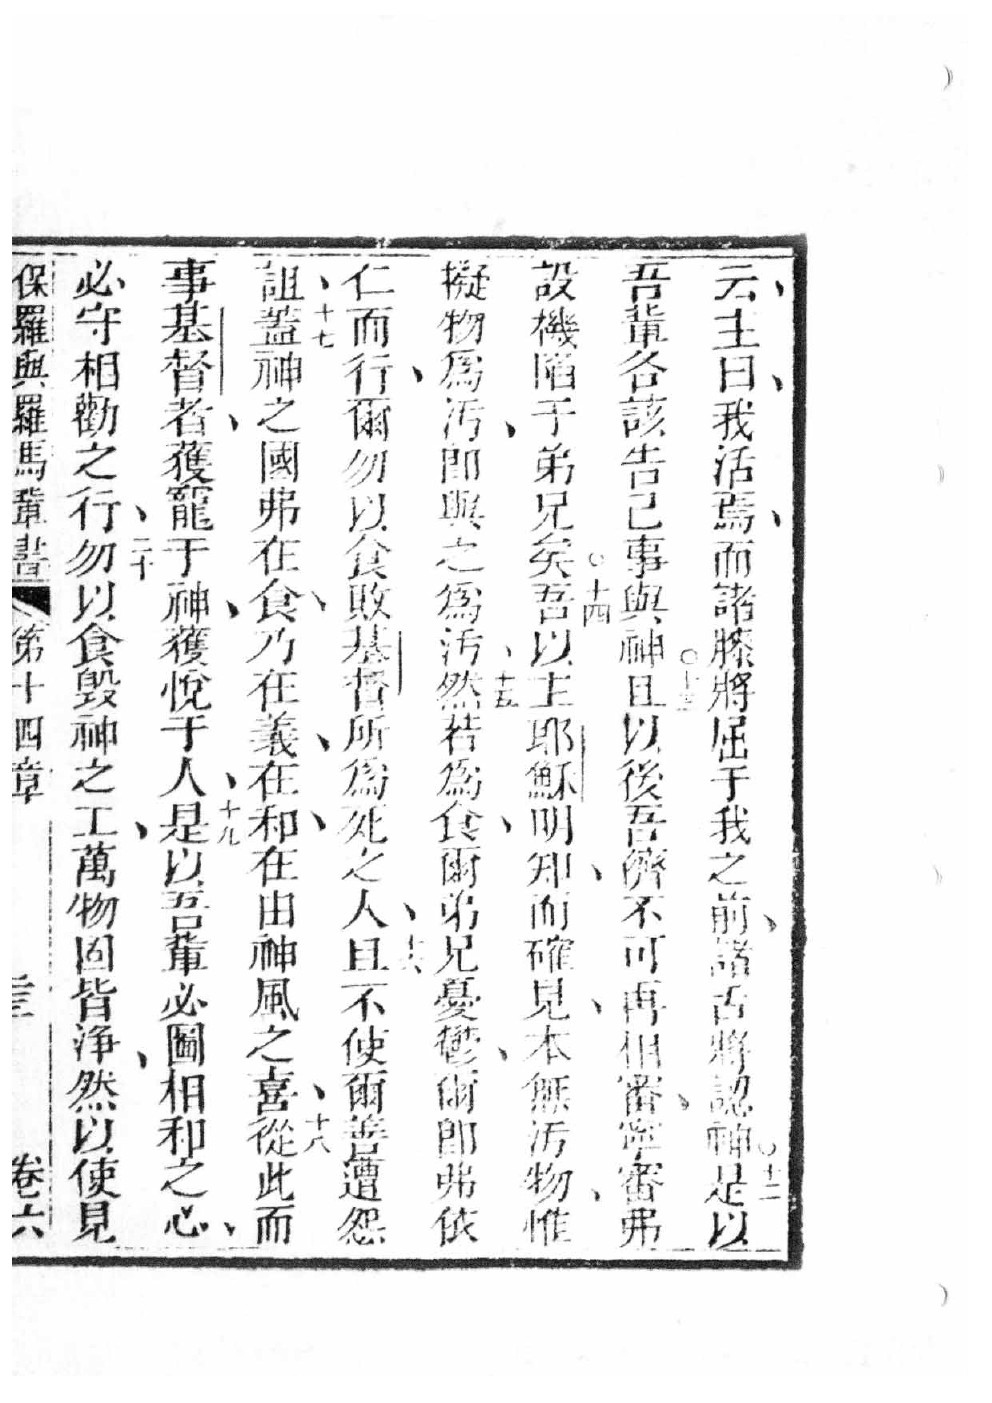 云主曰我活焉而諸膝將屈于我之前諸舌將認神○十二是以
吾輩各該告己事與神○十三且以後吾儕不可再相審寧審弗
設機陷于弟兄矣○十四吾以主耶穌明知而確見本無汚物惟
擬物爲汚卽與之爲汚十五然若爲食爾弟兄憂鬱爾卽弗依
仁而行爾勿以食敗基督所爲死之人十六且不使爾善遭怨
詛十七蓋神之國弗在食乃在義在和在由神風之喜十八從此而
事基督者獲寵于神獲悅于人十九是以吾輩必圖相和之心
必守相勸之行二十勿以食毀神之工萬物固皆淨然以使見
保羅與羅馬輩書 第十四章 卷六